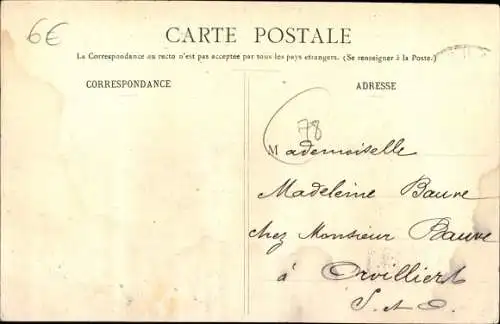 6€
CARTE POSTALE
La Correspondance au recto n'est pas acceptée par tous les pays étrangers. (Se renseigner à la Poste.)
CORRESPONDANCE
ADRESSE
78
Mademoiselle
Madeleine Bauve
chez Monsieur Bauve
à Orvilliers
S. et O.